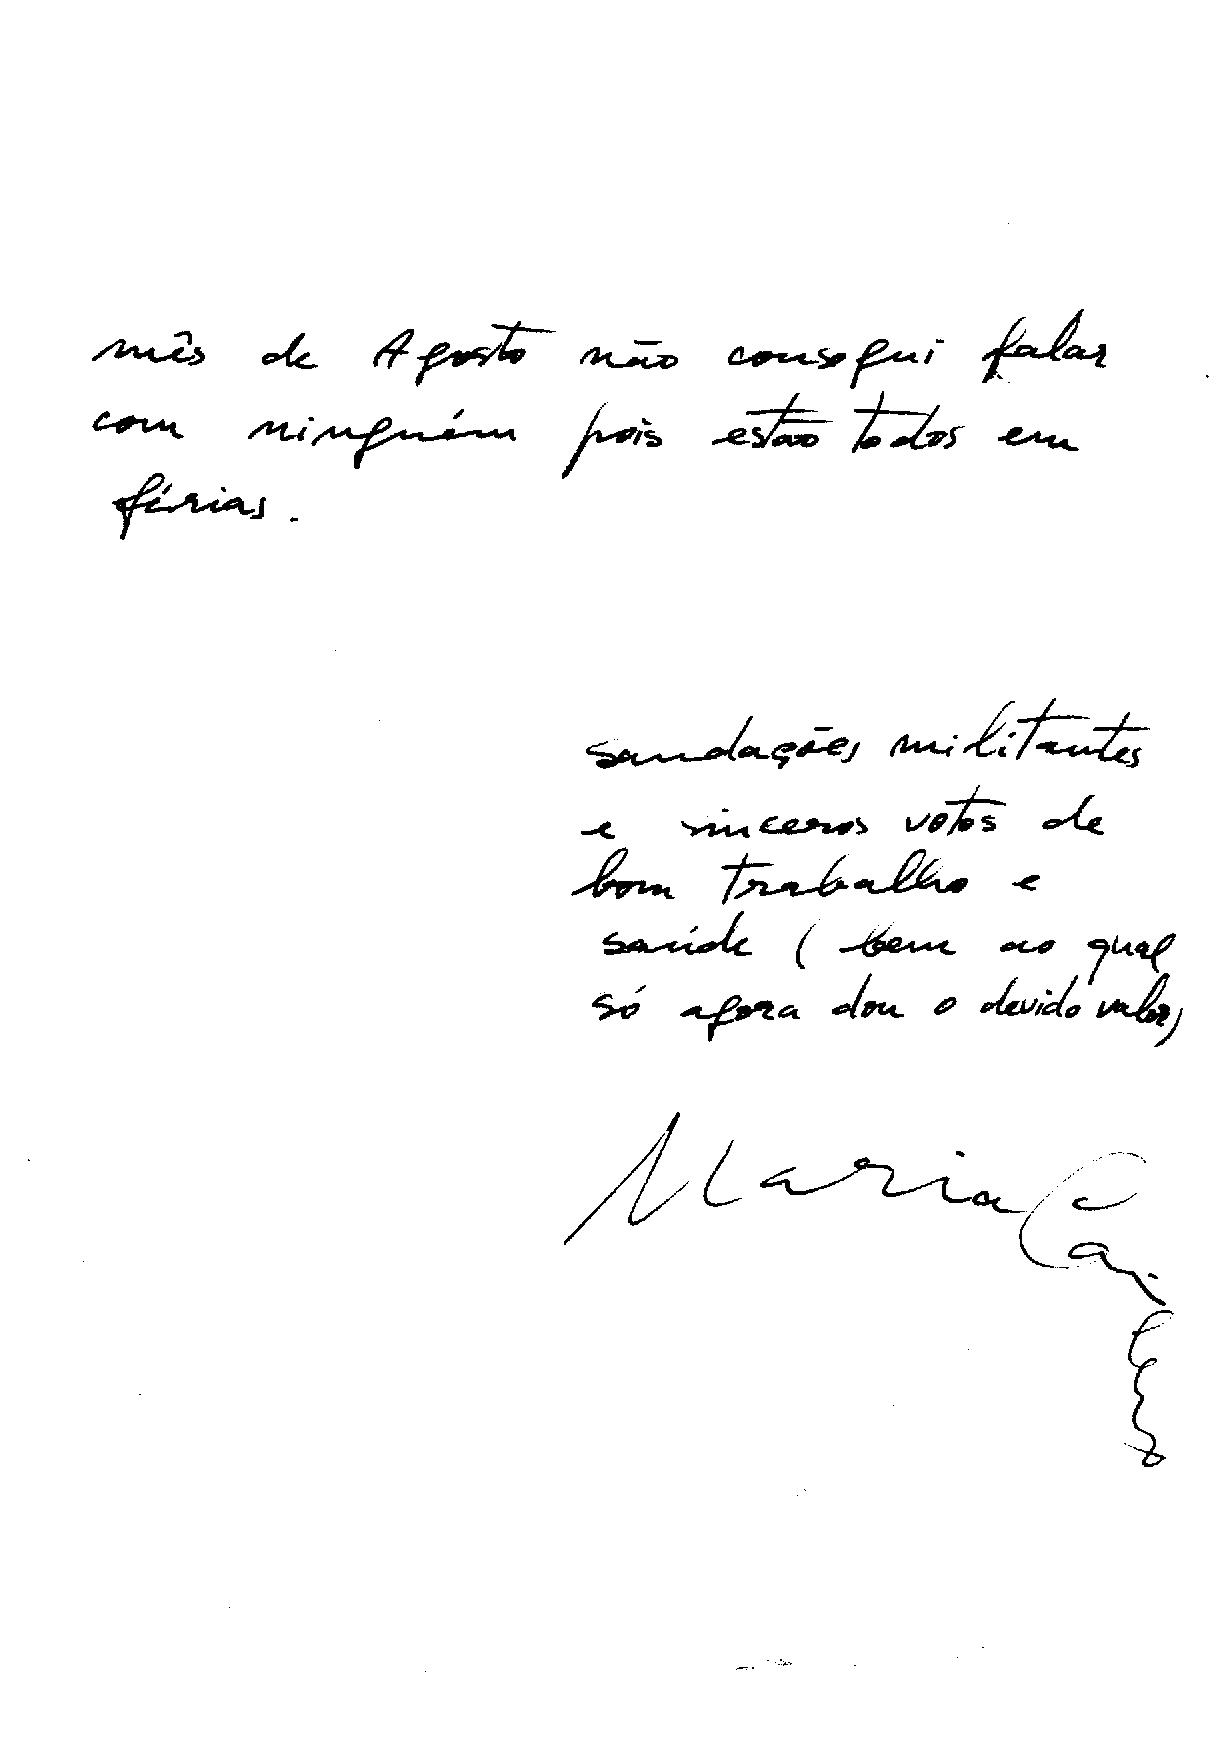 mês de Agosto não consegui falar
com ninguém pois estão todos em
férias.
saudações militantes
e sinceros votos de
bom trabalho e
saúde (bem ao qual
só agora dou o devido valor)
Maria